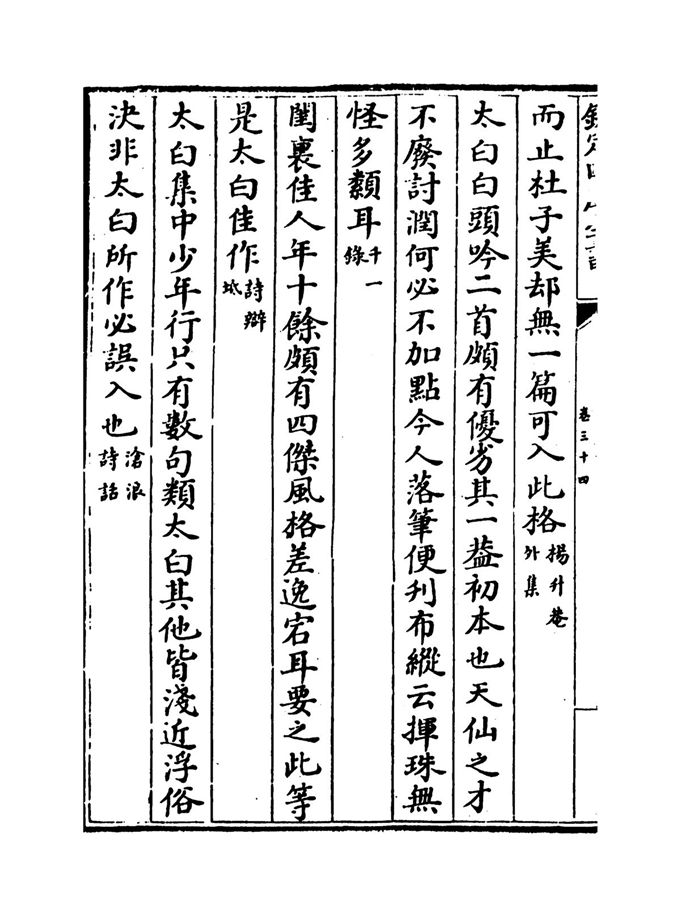 欽定四庫全書
卷三十四
而止杜子美却無一篇可入此格楊升菴外集
太白白頭吟二首頗有優劣其一葢初本也天仙之才
不廢討潤何必不加點今人落筆便刋布縱云揮珠無
怪多纇耳千一錄
閨裏佳人年十餘頗有四傑風格差逸宕耳要之此等
是太白佳作詩辯坻
太白集中少年行只有數句類太白其他皆淺近浮俗
決非太白所作必誤入也滄浪詩話